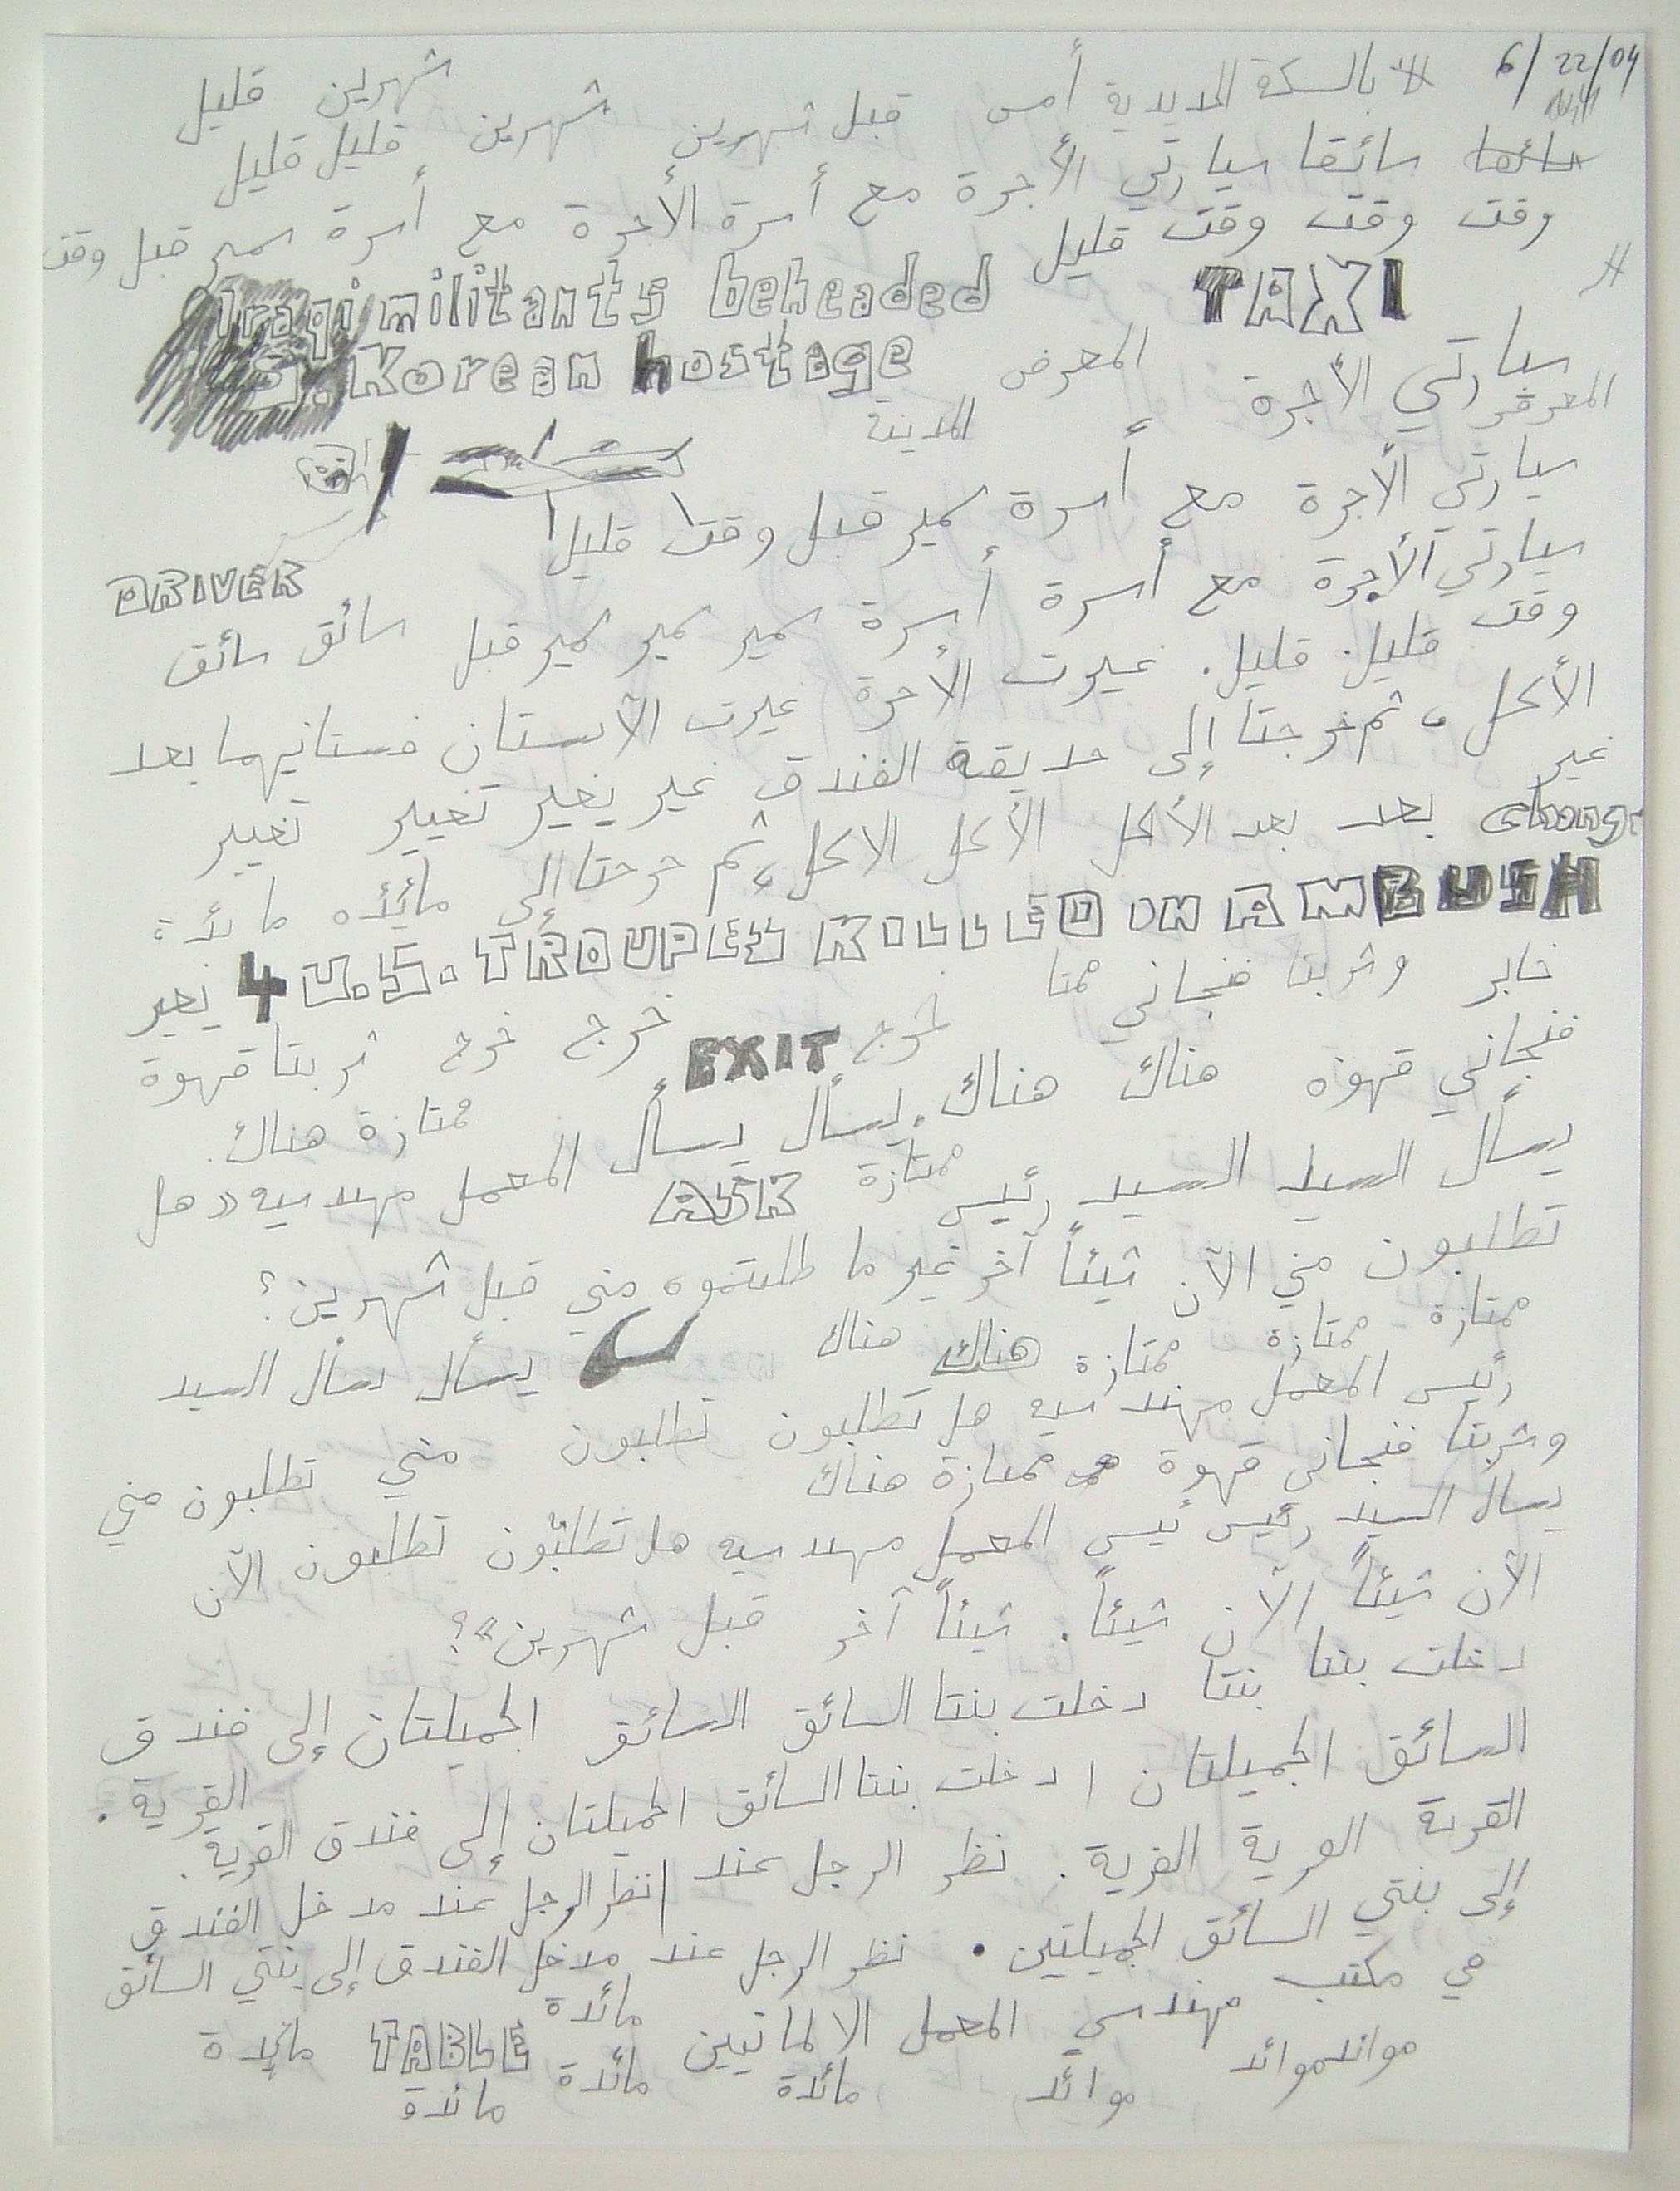 6/22/04
بالسكة الحديدية أمس قبل شهرين شهرين شهرين قليل
سائقا سيارتي الأجرة مع أسرة الأجرة مع أسرة سمير قبل وقت
قليل قليل
وقت وقت وقت قليل
TAXI
Iraqi militants beheaded
S. Korean hostage
سيارتي الأجرة المعرض
المعرض المدينة
سيارتي الأجرة مع أسرة سمير قبل وقت قليل
DRIVER
سيارتي الأجرة مع أسرة أسرة سمير سمير سمير قبل سائق سائق
وقت قليل. قليل. غيرت الأجرة غيرت الآنستان فستانيهما بعد
الأكل، ثم خرجتا إلى حديقة الفندق غير يغير تغيير تغيير
غير
change بعد بعد الأكل الأكل الأكل، ثم خرجتا إلى مائده مائدة
4 U.S. TROUPES KILLED IN AMBUSH
يغير
وشربتا فنجاني خرج EXIT خرج خرج شربتا قهوة
فنجاني قهوه هناك هناك. يسأل يسأل ممتازة هناك.
يسأل السيد السيد رئيس ممتازة ASK المعمل مهندسيه «هل
تطلبون مني الآن شيئاً آخر غير ما طلبتموه مني قبل شهرين؟
ممتازة ممتازة ممتازة هناك هناك يسأل يسأل السيد
رئيس المعمل مهندسيه هل تطلبون تطلبون مني تطلبون مني
وشربتا فنجاني قهوة ممتازة هناك
يسأل السيد رئيس رئيس المعمل مهندسيه هل تطلبون تطلبون الآن
الآن شيئاً الآن شيئاً. شيئاً آخر قبل شهرين»؟
دخلت بنتا بنتا دخلت بنتا السائق السائق الجميلتان إلى فندق
القرية.
السائق الجميلتان ا دخلت بنتا السائق الجميلتان إلى فندق القرية.
القرية القرية القرية. نظر الرجل عند ا نظر الرجل عند مدخل الفندق
إلى بنتي السائق الجميلتين. نظر الرجل عند مدخل الفندق إلى بنتي السائق
في مكتب مهندسي المعمل الالمانيين مائدة TABLE مائدة
موائد موائد موائد مائدة مائدة مائدة